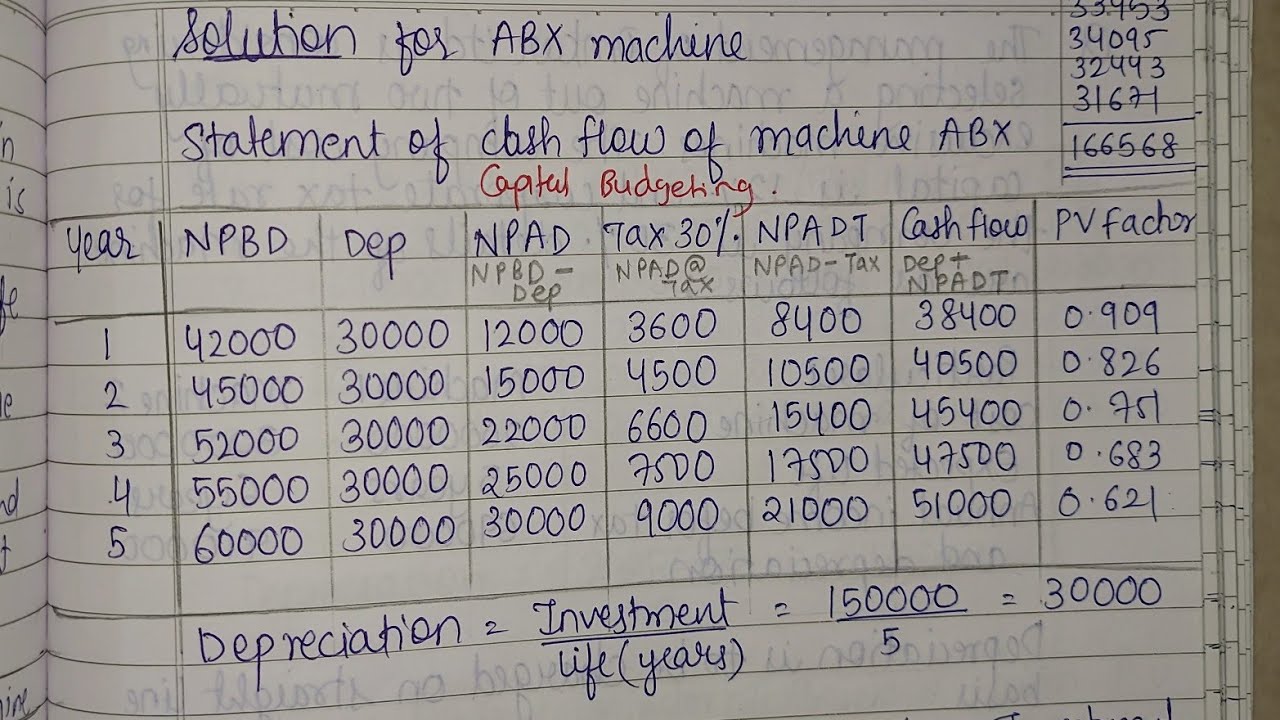 Solution for ABX machine
33453
34095
32443
31671
166568
Statement of cash flow of machine ABX
Capital Budgeting.
Year NPBD Dep NPAD Tax 30% NPADT Cash flow PV factor
NPBD - Dep NPAD@ Tax NPAD - Tax Dep + NPADT
1 42000 30000 12000 3600 8400 38400 0.909
2 45000 30000 15000 4500 10500 40500 0.826
3 52000 30000 22000 6600 15400 45400 0.751
4 55000 30000 25000 7500 17500 47500 0.683
5 60000 30000 30000 9000 21000 51000 0.621
Depreciation = Investment / Life (years) = 150000 / 5 = 30000